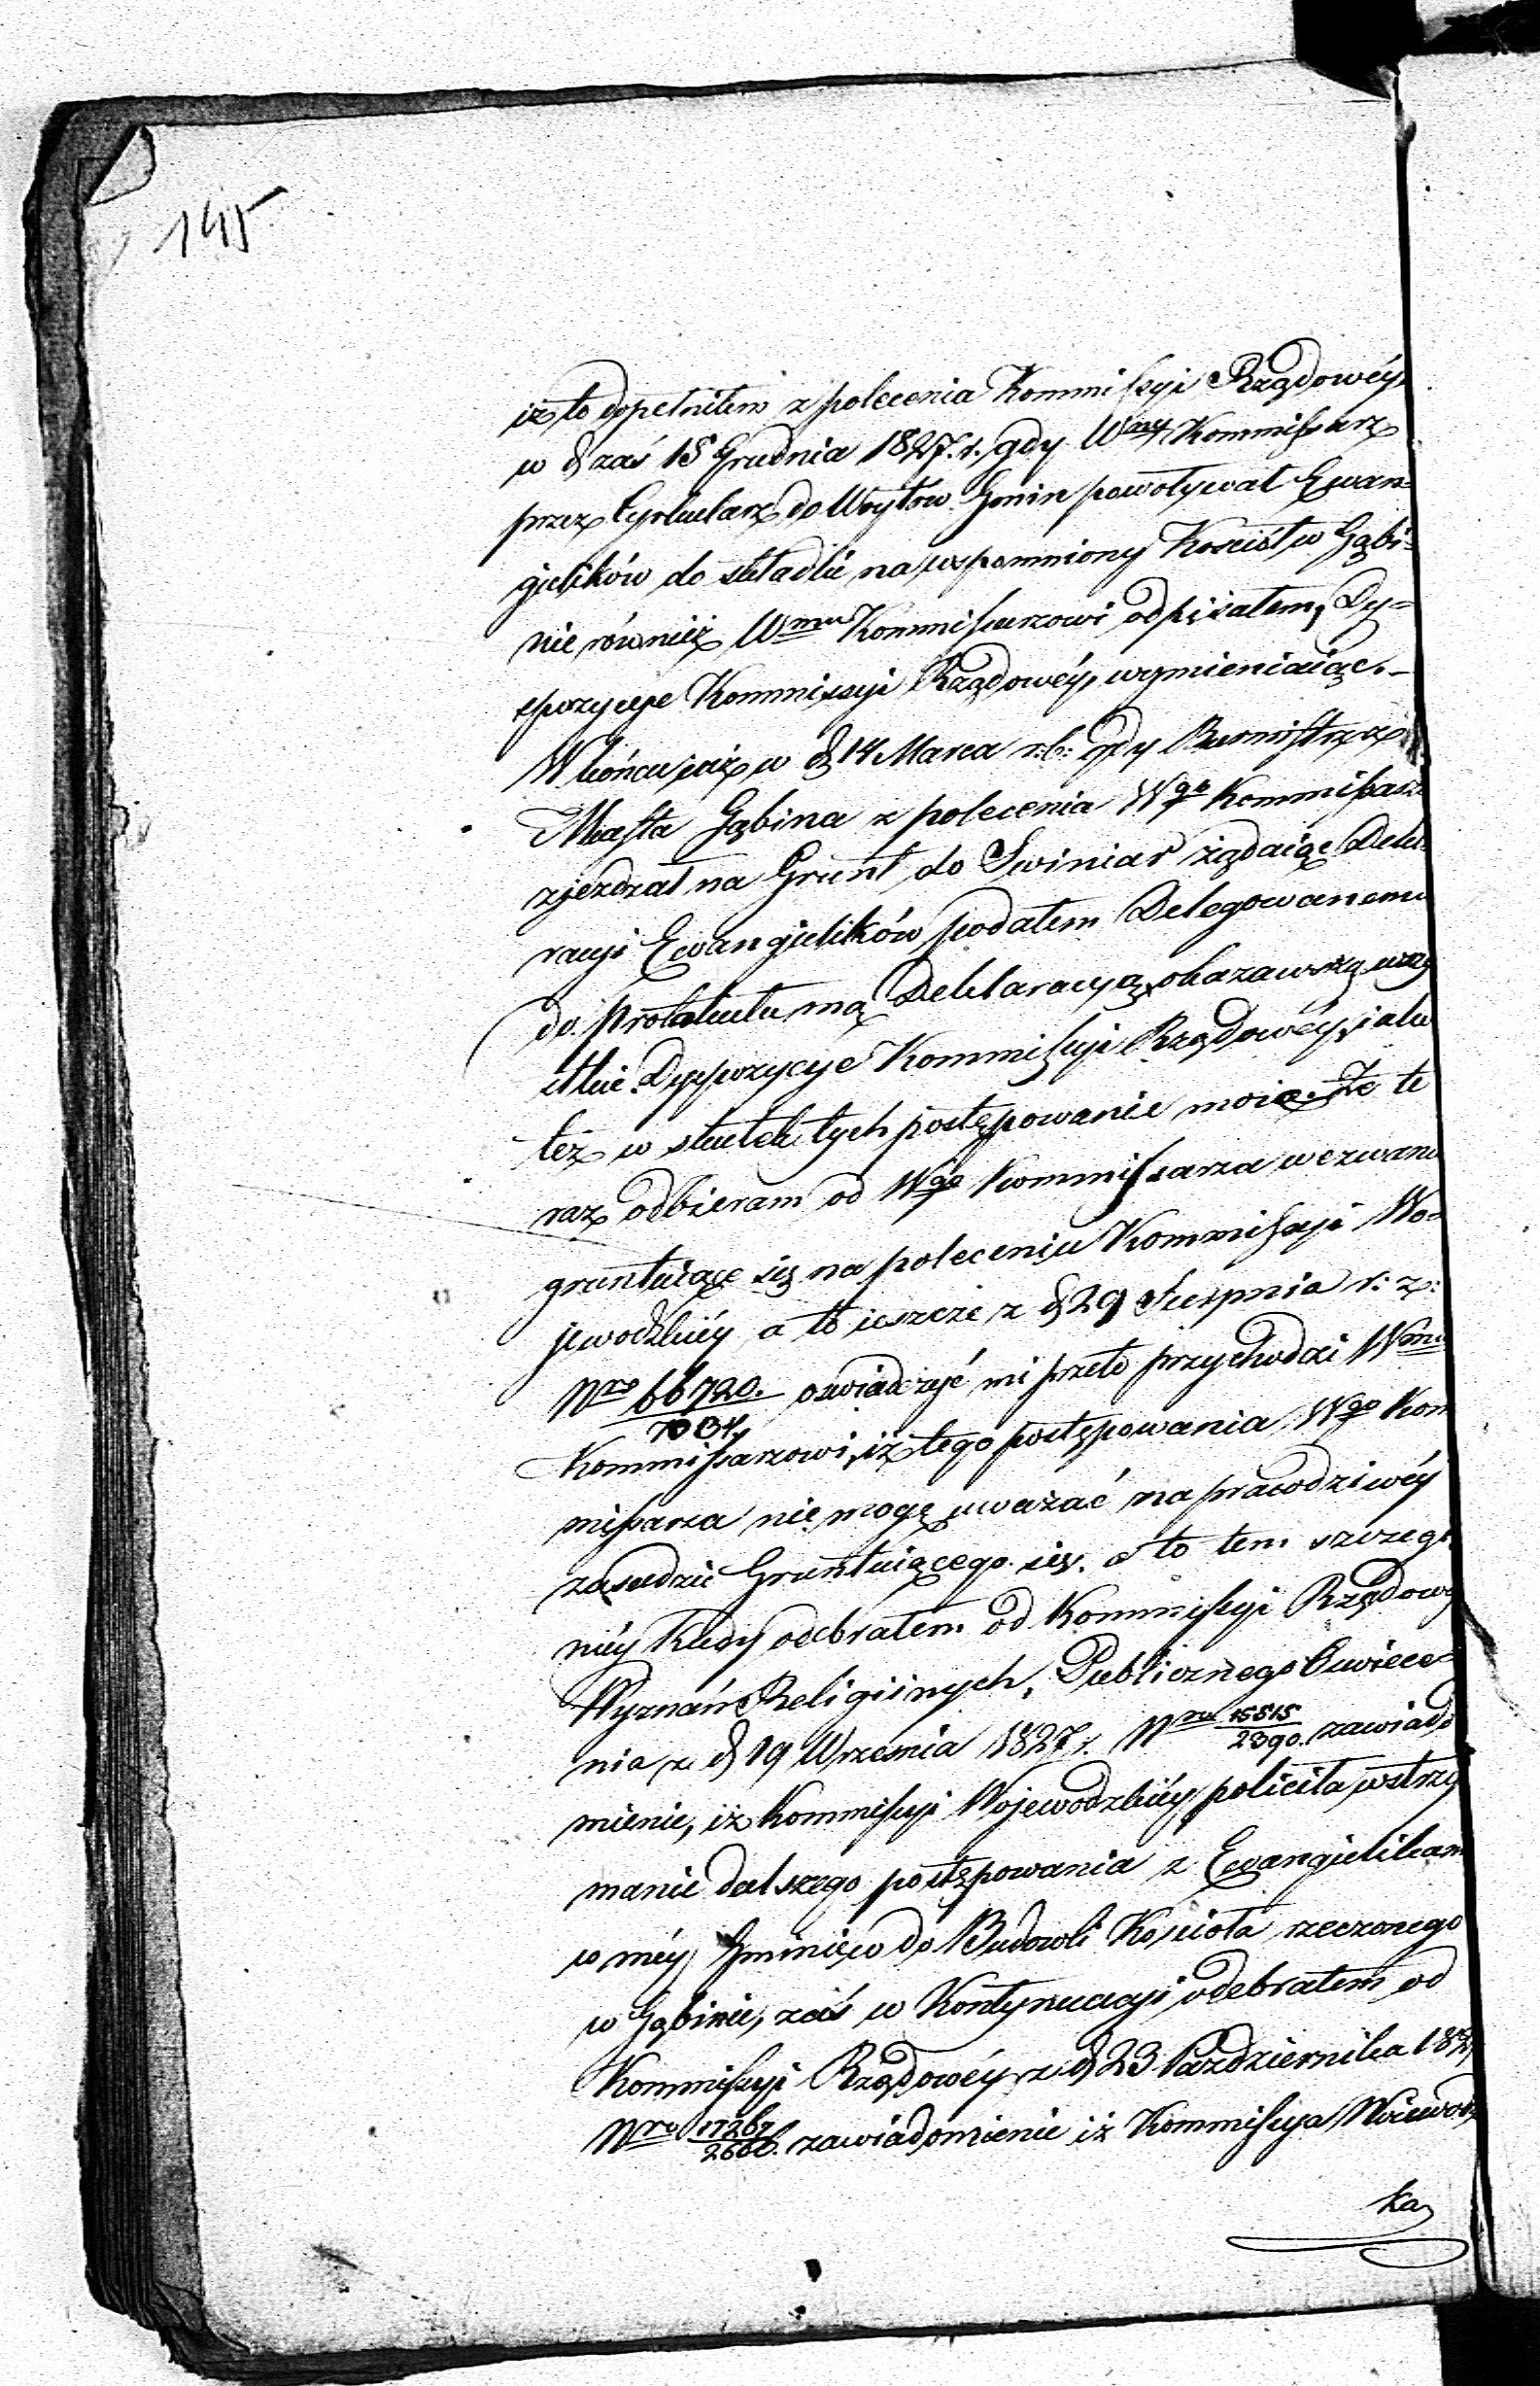 145
iż to dopełniłem z polecenia Kommissyi Rządowéy
w d. zaś 18 Grudnia 1827. r. gdy Wny Kommissarz
przez Cyrkularz do Woytow Gmin powoływał Ewan=
gielików do składki na wspomniony Kościoł w Gąbi=
nie również Wmu Kommissarzowi odpisałem, Dy=
spozycye Kommissyi Rządowéy, wymieniaiąc.–
W końcu iuż w d 14 Marca r: b: gdy Burmistrz
Miasta Gąbina z polecenia Wgo Kommissarz
zjezdzał na Grunt do Swiniar żądaiąc Dekla
racyi Ewangielików podałem Delegowanemu
do protokułu mą Deklaracyą, okazawszy wszy
stkie Dyspozycye Kommissyi Rządowéy, iako
też w skutek tych postępowanie moie. Że te
raz odbieram od Wgo Kommissarza wezwanie
gruntuiące się na poleceniu Kommissyi Wo=
jewodzkiéy a to ieszcze z d 29 Sierpnia r: z:
Nro 66720./7034, oswiadczyć mi przeto przychodzi Wmu
Kommissarzowi, iż tego postępowania Wgo Kom
missarza nie mogę uważać na prawdziwéy
zasadzie Gruntuiącego się. a to tem szczegul
niéy kiedy odebrałem od Kommissyi Rządowéy
Wyznań Religiinych, Publicznego Oswiece=
nia z d 19 Września 1827 r. Nro 15815/2390. zawiado
mienie, iż Kommissyi Wojewodzkiéy poleciła wstrzy
manie dalszego postępowania z Ewangielikam
w méy Gminie, co do Budowli Kościoła rzeczonego
w Gąbinie, zaś w Kontynuacyi odebrałem od
Kommissyi Rządowéy z d 23 Października 1827
Nro 17267/2660. zawiadomienie iż Kommissya Woiewodz
ka